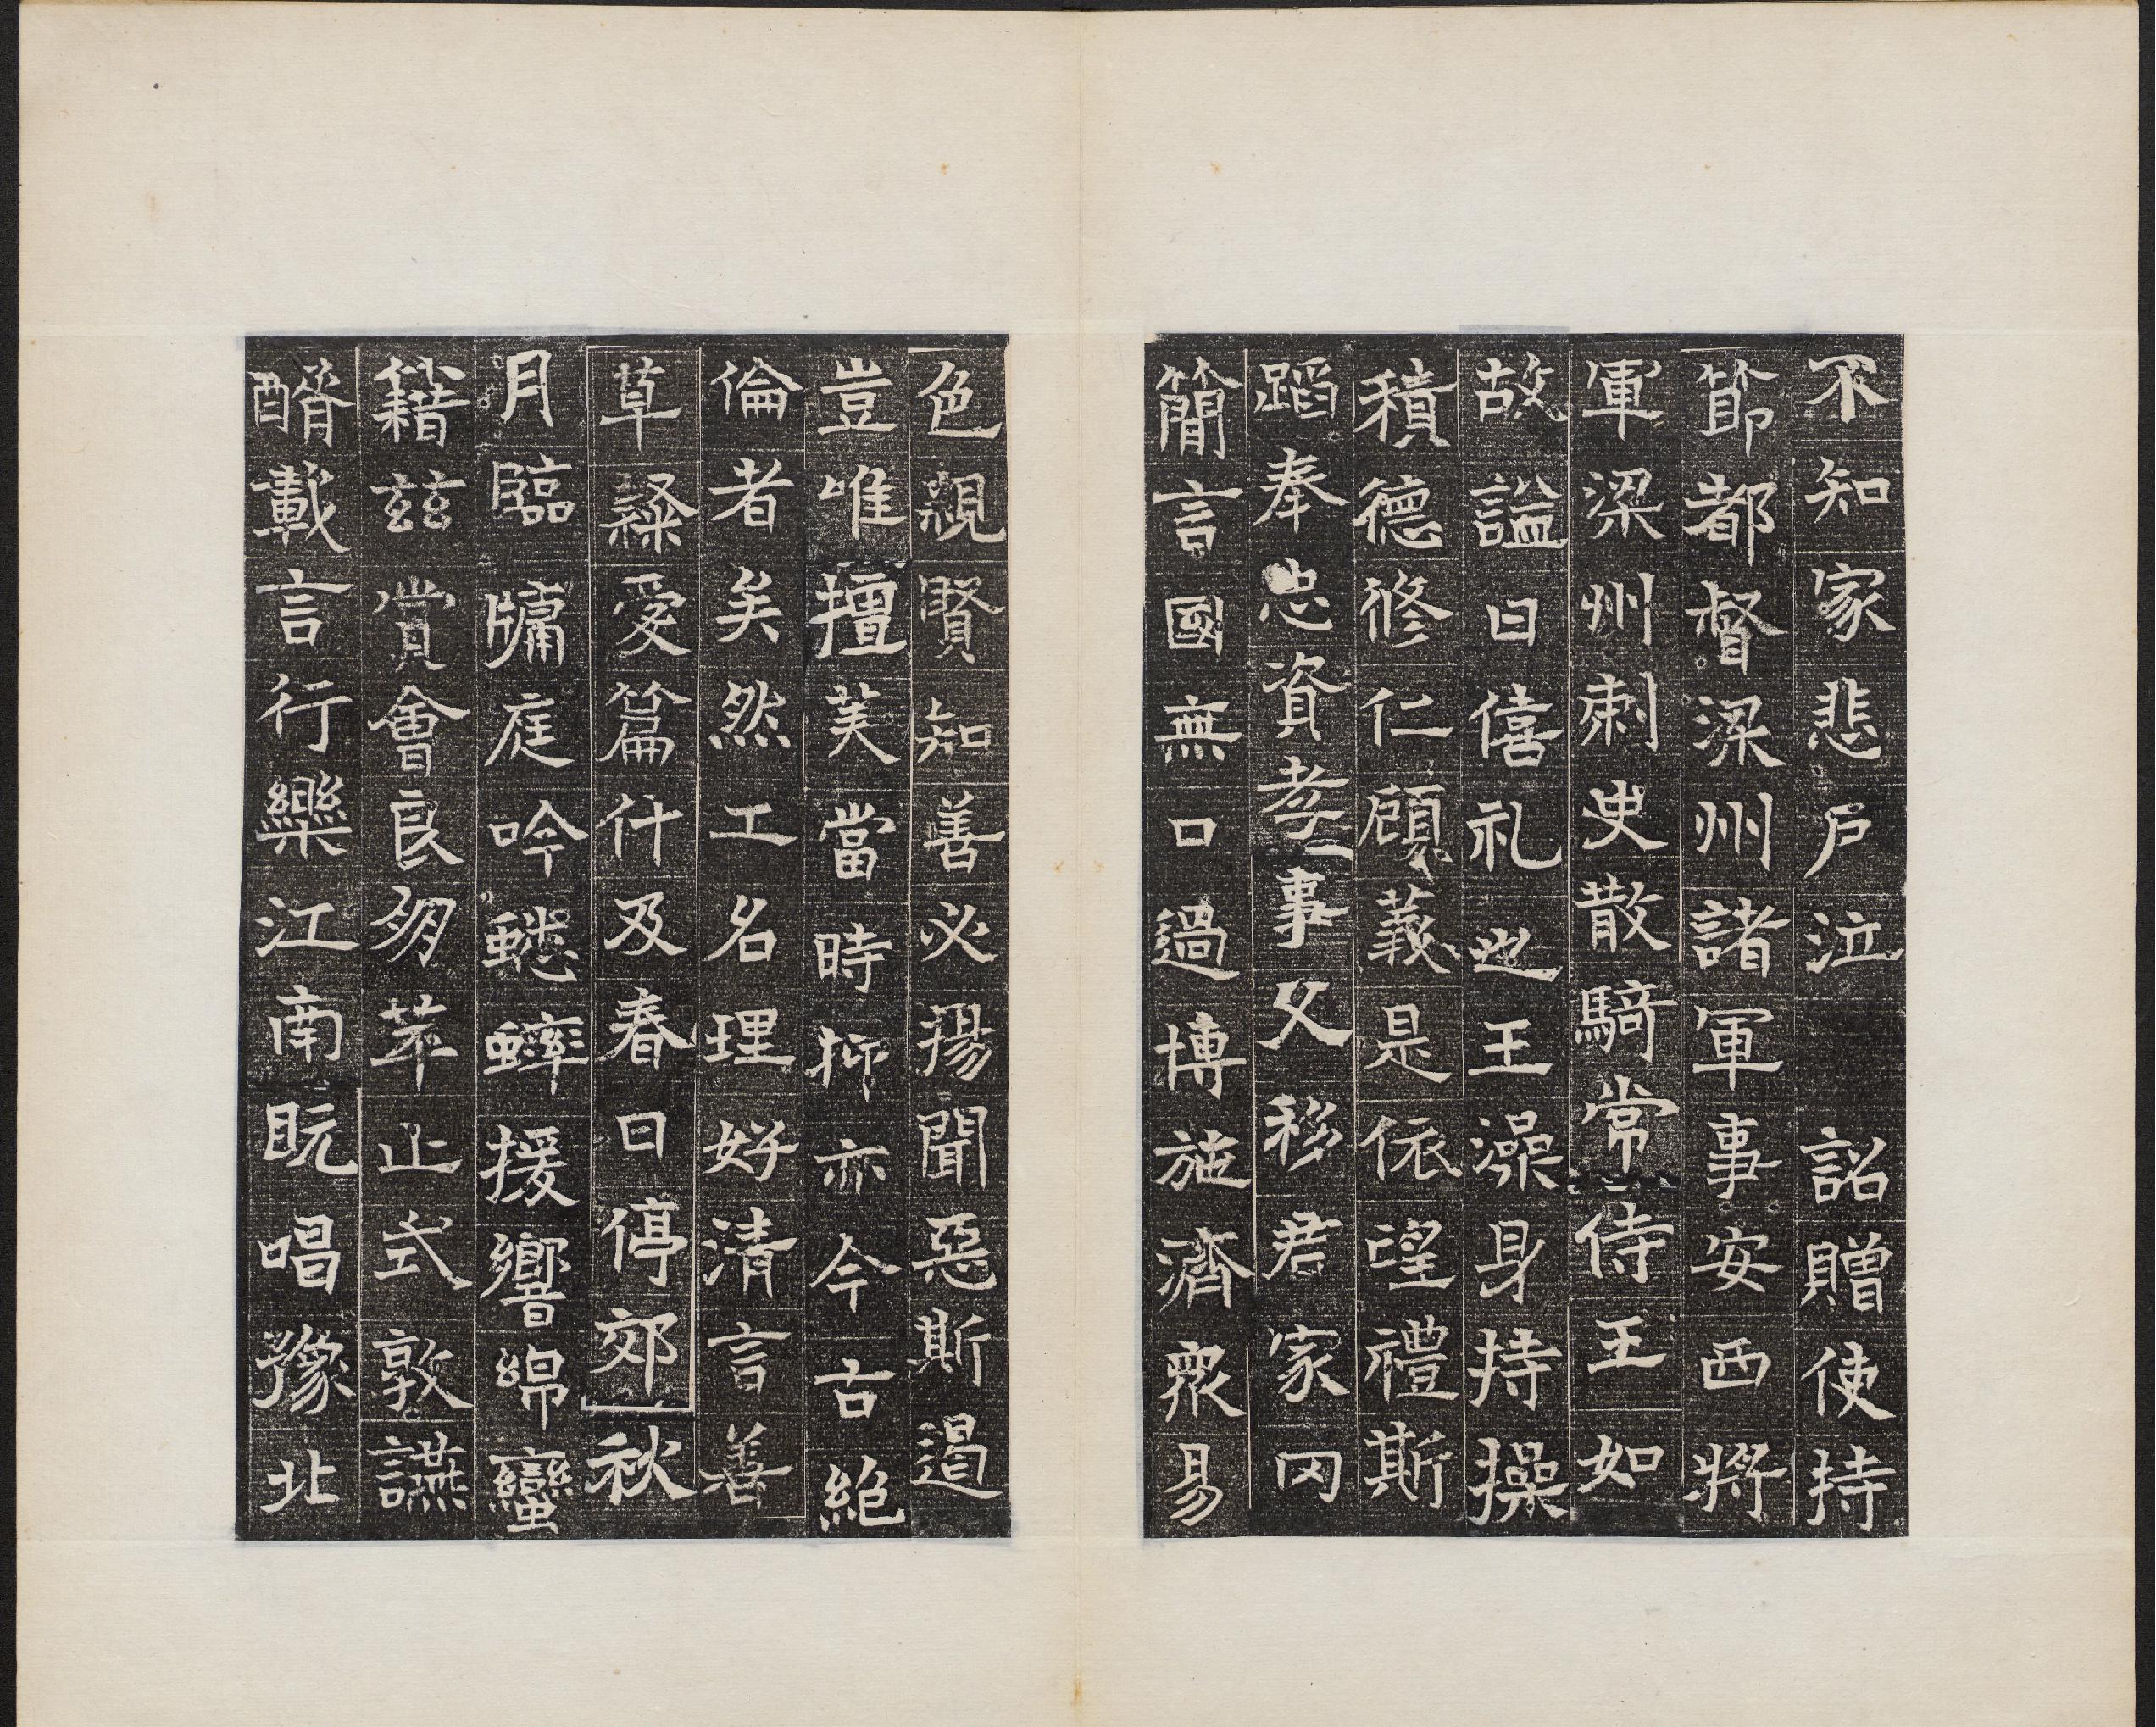 不知家悲戶泣 詔贈使持
節都督梁州諸軍事安西將
軍梁州刺史散騎常侍王如
故謚曰僖礼也王澡身持操
積德脩仁顧義是依望禮斯
蹈奉忠資孝事父移君家罔
簡言國無口過博施濟衆易
色親賢知善必揚聞惡斯遏
豈唯擅美當時抑亦今古絕
倫者矣然工名理好清言善
草隸愛篇什及春日停郊秋
月臨牖庭吟蟋蟀援響綿蠻
籍兹賞會良朋萃止式敦讌
醑載言行樂江南旣唱豫北